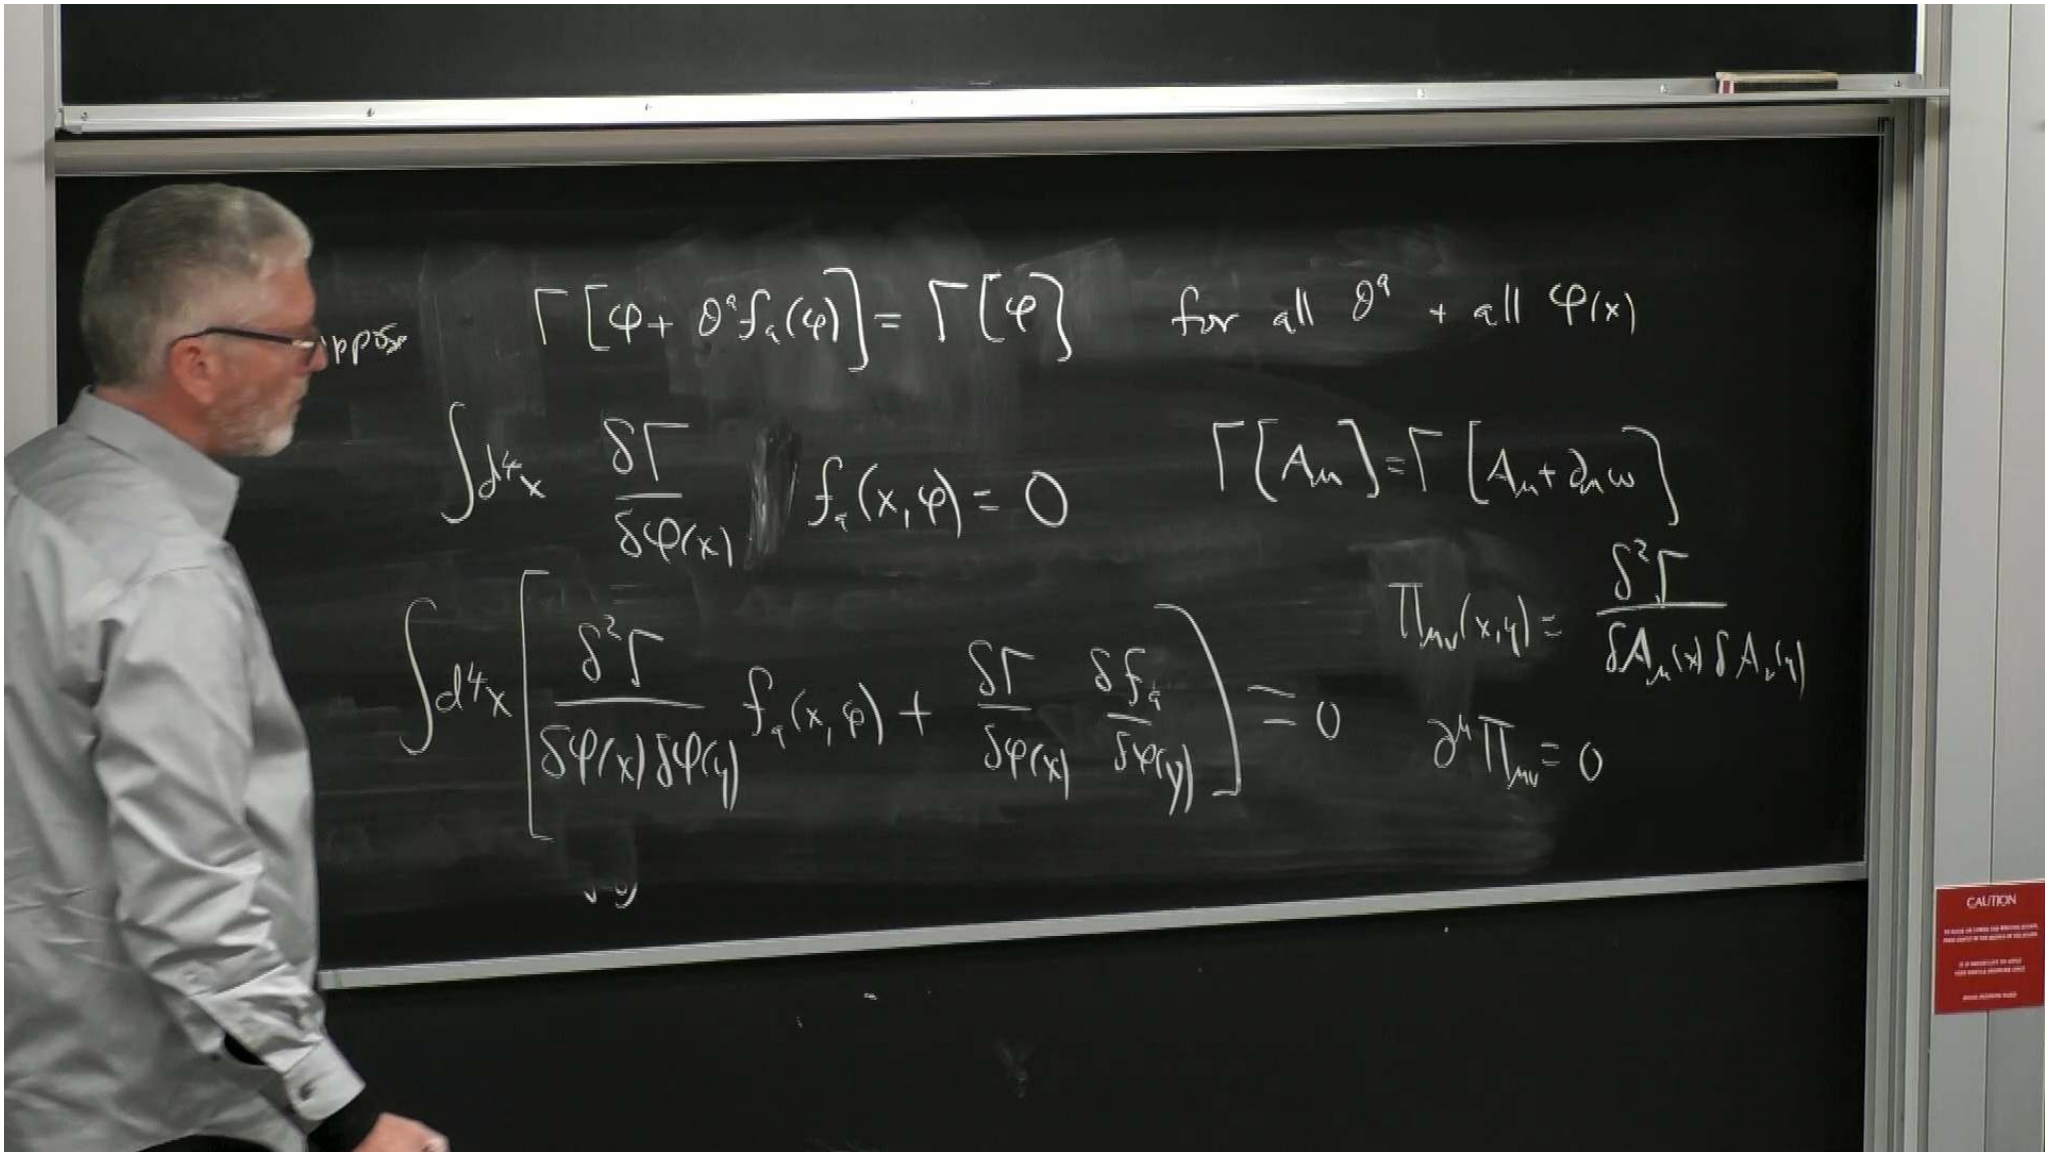 Γ[φ + θ^a f_a(φ)] = Γ[φ] for all θ^a + all φ(x)
∫d⁴x δΓ/δφ(x) f_a(x,φ) = 0
Γ[A_μ] = Γ[A_μ + ∂_μ ω]
∫d⁴x [δ²Γ/δφ(x)δφ(y) f_a(x,φ) + δΓ/δφ(x) δf_a/δφ(y)] = 0
Π_μν(x,y) = δ²Γ/δA_μ(x)δA_ν(y)
∂^μ Π_μν = 0
CAUTION